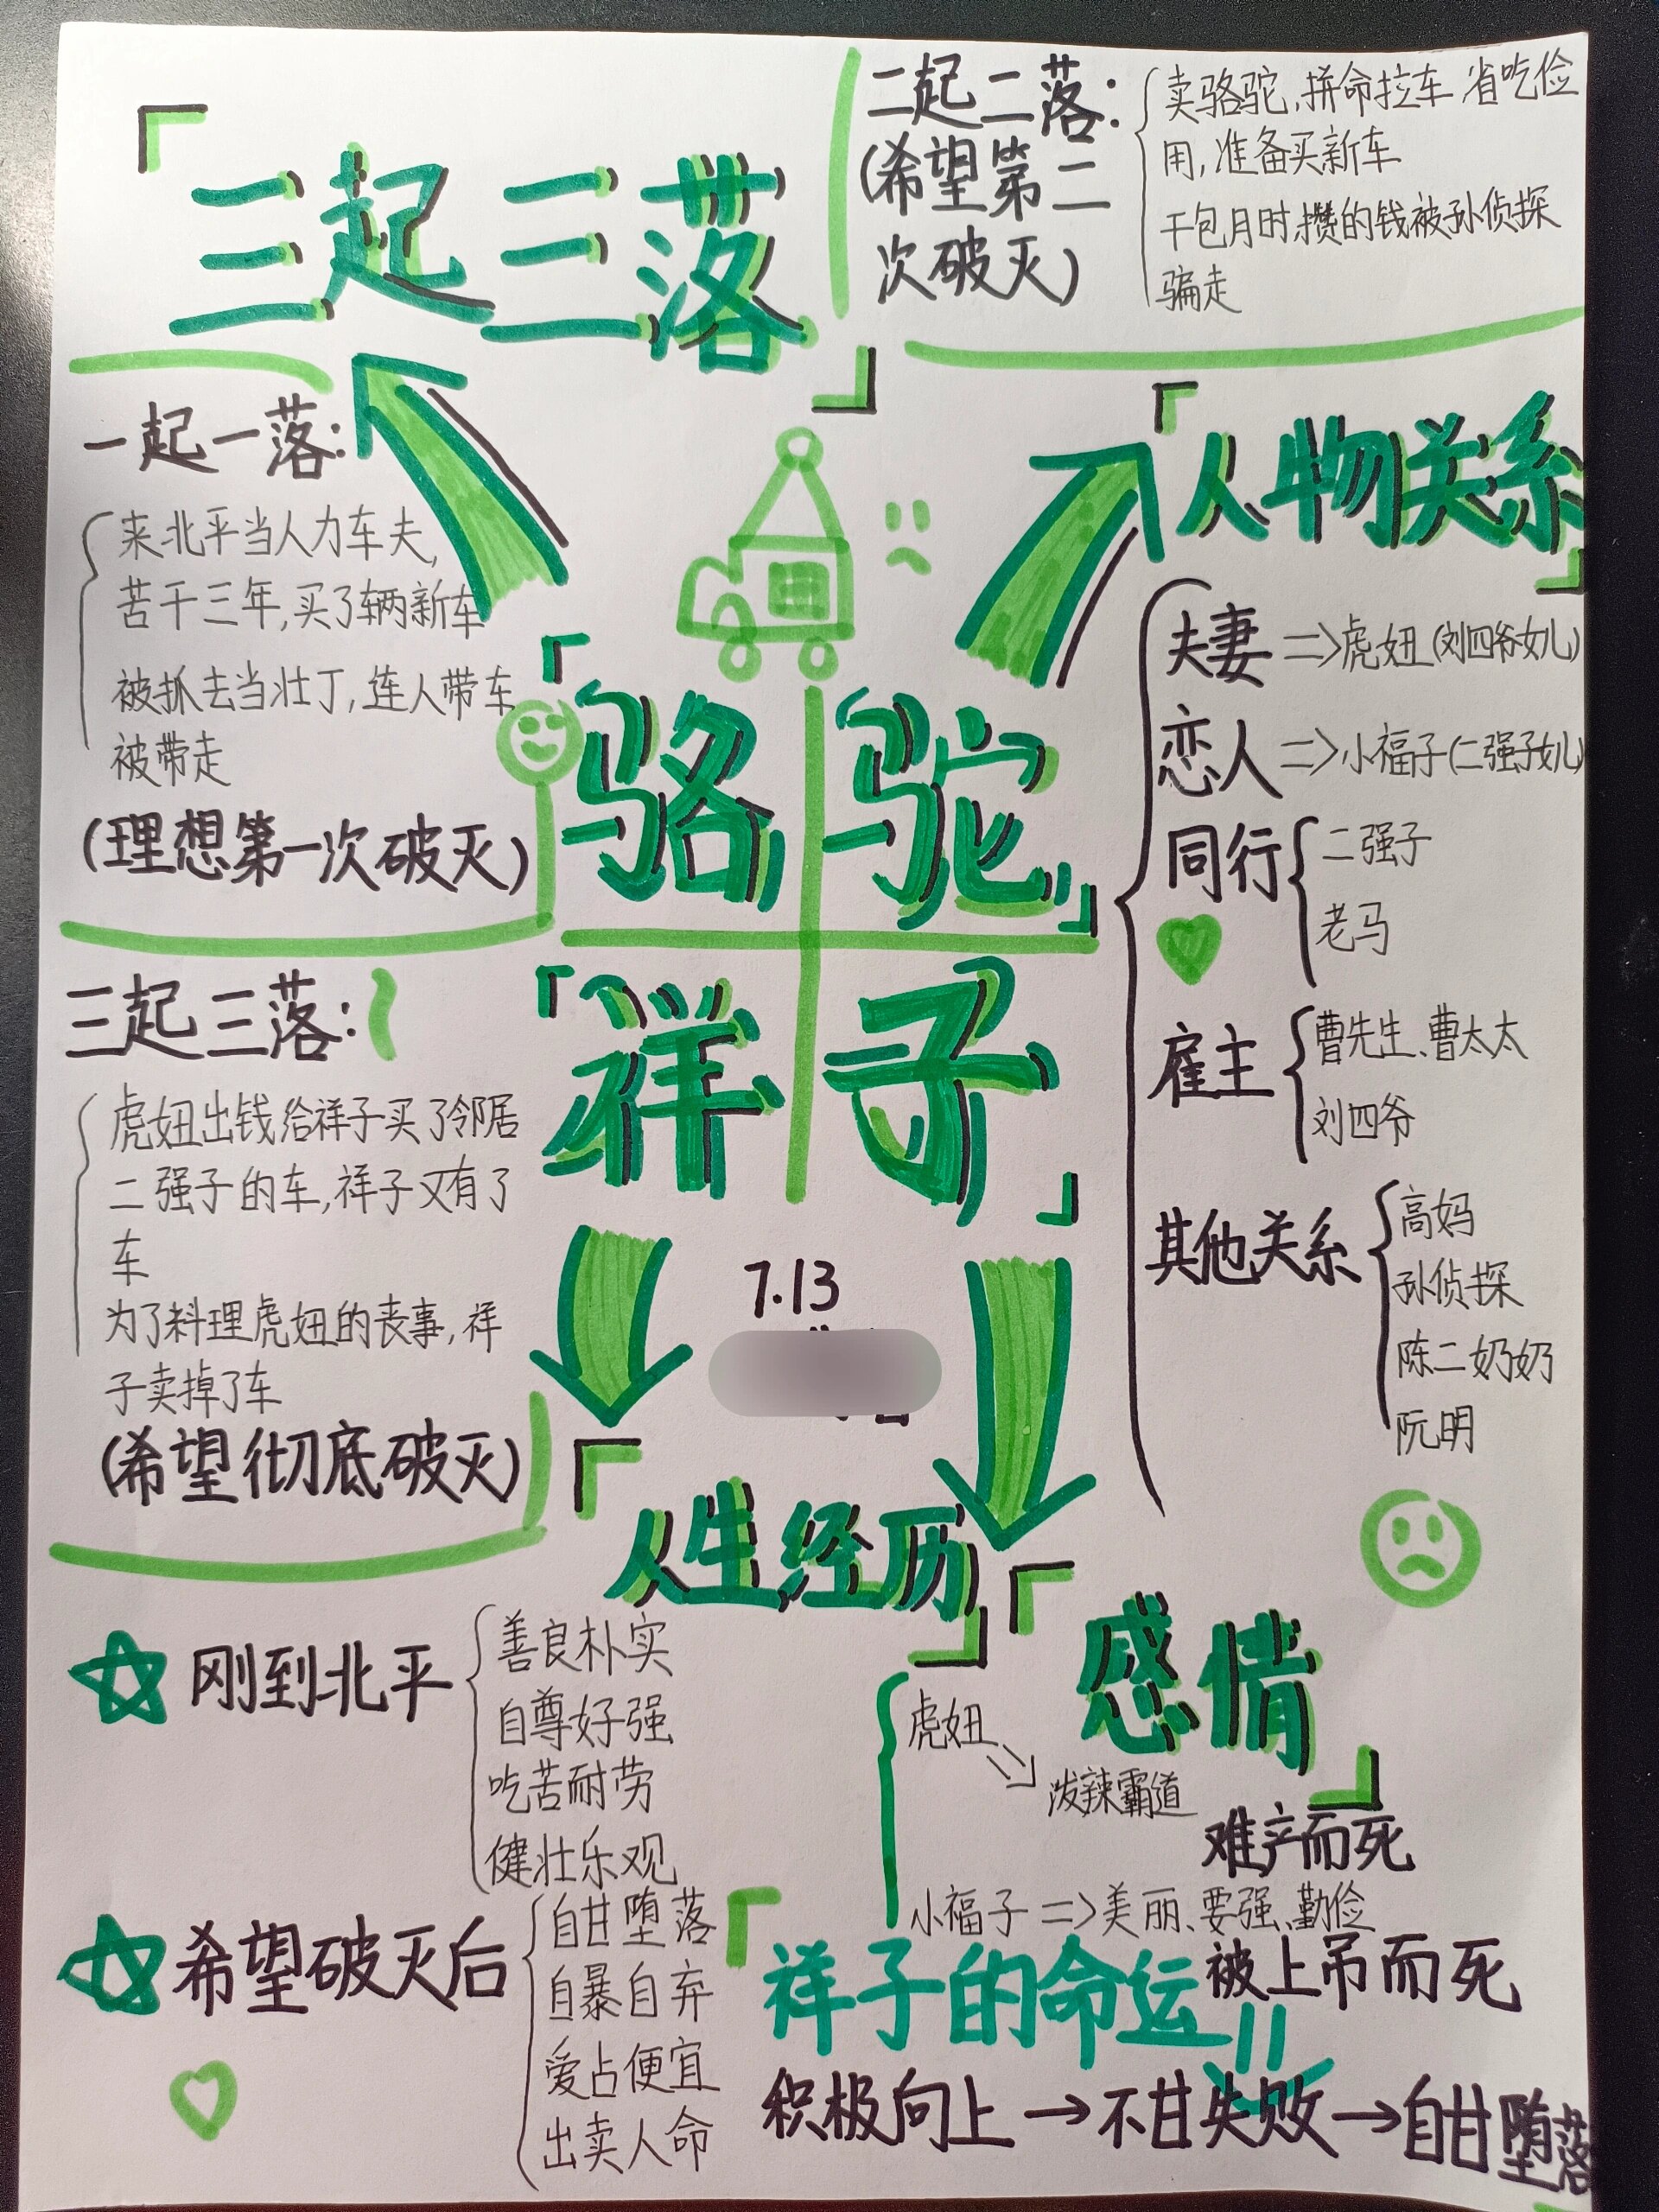 三起三落
二起二落:
(希望第二
次破灭)
卖骆驼,拼命拉车 省吃俭
用,准备买新车
干包月时,攒的钱被孙侦探
骗走
一起一落:
来北平当人力车夫,
苦干三年,买了辆新车
被抓去当壮丁,连人带车
被带走
(理想第一次破灭)
三起三落:
虎妞出钱给祥子买了邻居
二强子的车,祥子又有了
车
为了料理虎妞的丧事,祥
子卖掉了车
(希望彻底破灭)
骆驼
祥子
7.13
人物关系
夫妻=>虎妞(刘四爷女儿)
恋人=>小福子(二强子女儿)
同行
二强子
老马
雇主
曹先生、曹太太
刘四爷
其他关系
高妈
孙侦探
陈二奶奶
阮明
人生经历
刚到北平
善良朴实
自尊好强
吃苦耐劳
健壮乐观
希望破灭后
自甘堕落
自暴自弃
爱占便宜
出卖人命
感情
虎妞
泼辣霸道
难产而死
小福子=>美丽、要强、勤俭
被上吊而死
祥子的命运
积极向上→不甘失败→自甘堕落